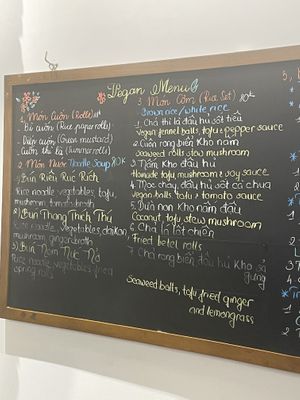 Vegan Menu
1. Món Cuốn (Rolls)
- Bò cuốn (Rice paper rolls)
- Diếp cuốn (Green mustard)
- Cuốn thì là (Summer rolls)
2. Món Nước Noodle Soup
1) Bún Riêu Rúc Rích
Rice noodle, vegetables, tofu,
mushroom tomato broth
2) Bún Thang Thích Thú
Rice noodle, vegetables, daikon,
mushroom ginger broth
3) Bún Nem Nức Nở
Rice noodle, vegetables, fried
spring rolls
3. Món Cơm (Rice Set)
Brown rice / white rice
1. Chả thì là đậu hủ sốt tiêu
Vegan fennel balls, tofu & pepper sauce
2. Cuốn rong biển kho nấm
Seaweed rolls stew mushroom
3. Mắm kho đậu hủ
tofu, mushroom & soy sauce
4. Mọc chay, đậu hủ sốt cà chua
Vegan balls, tofu & tomato sauce
5. Dừa non kho nấm đậu
Coconut, tofu stew mushroom
6. Chả lá lốt chiên
Fried betel rolls
7. Chả rong biển đậu hủ kho sả
gừng
Seaweed balls, tofu fried ginger
and lemongrass